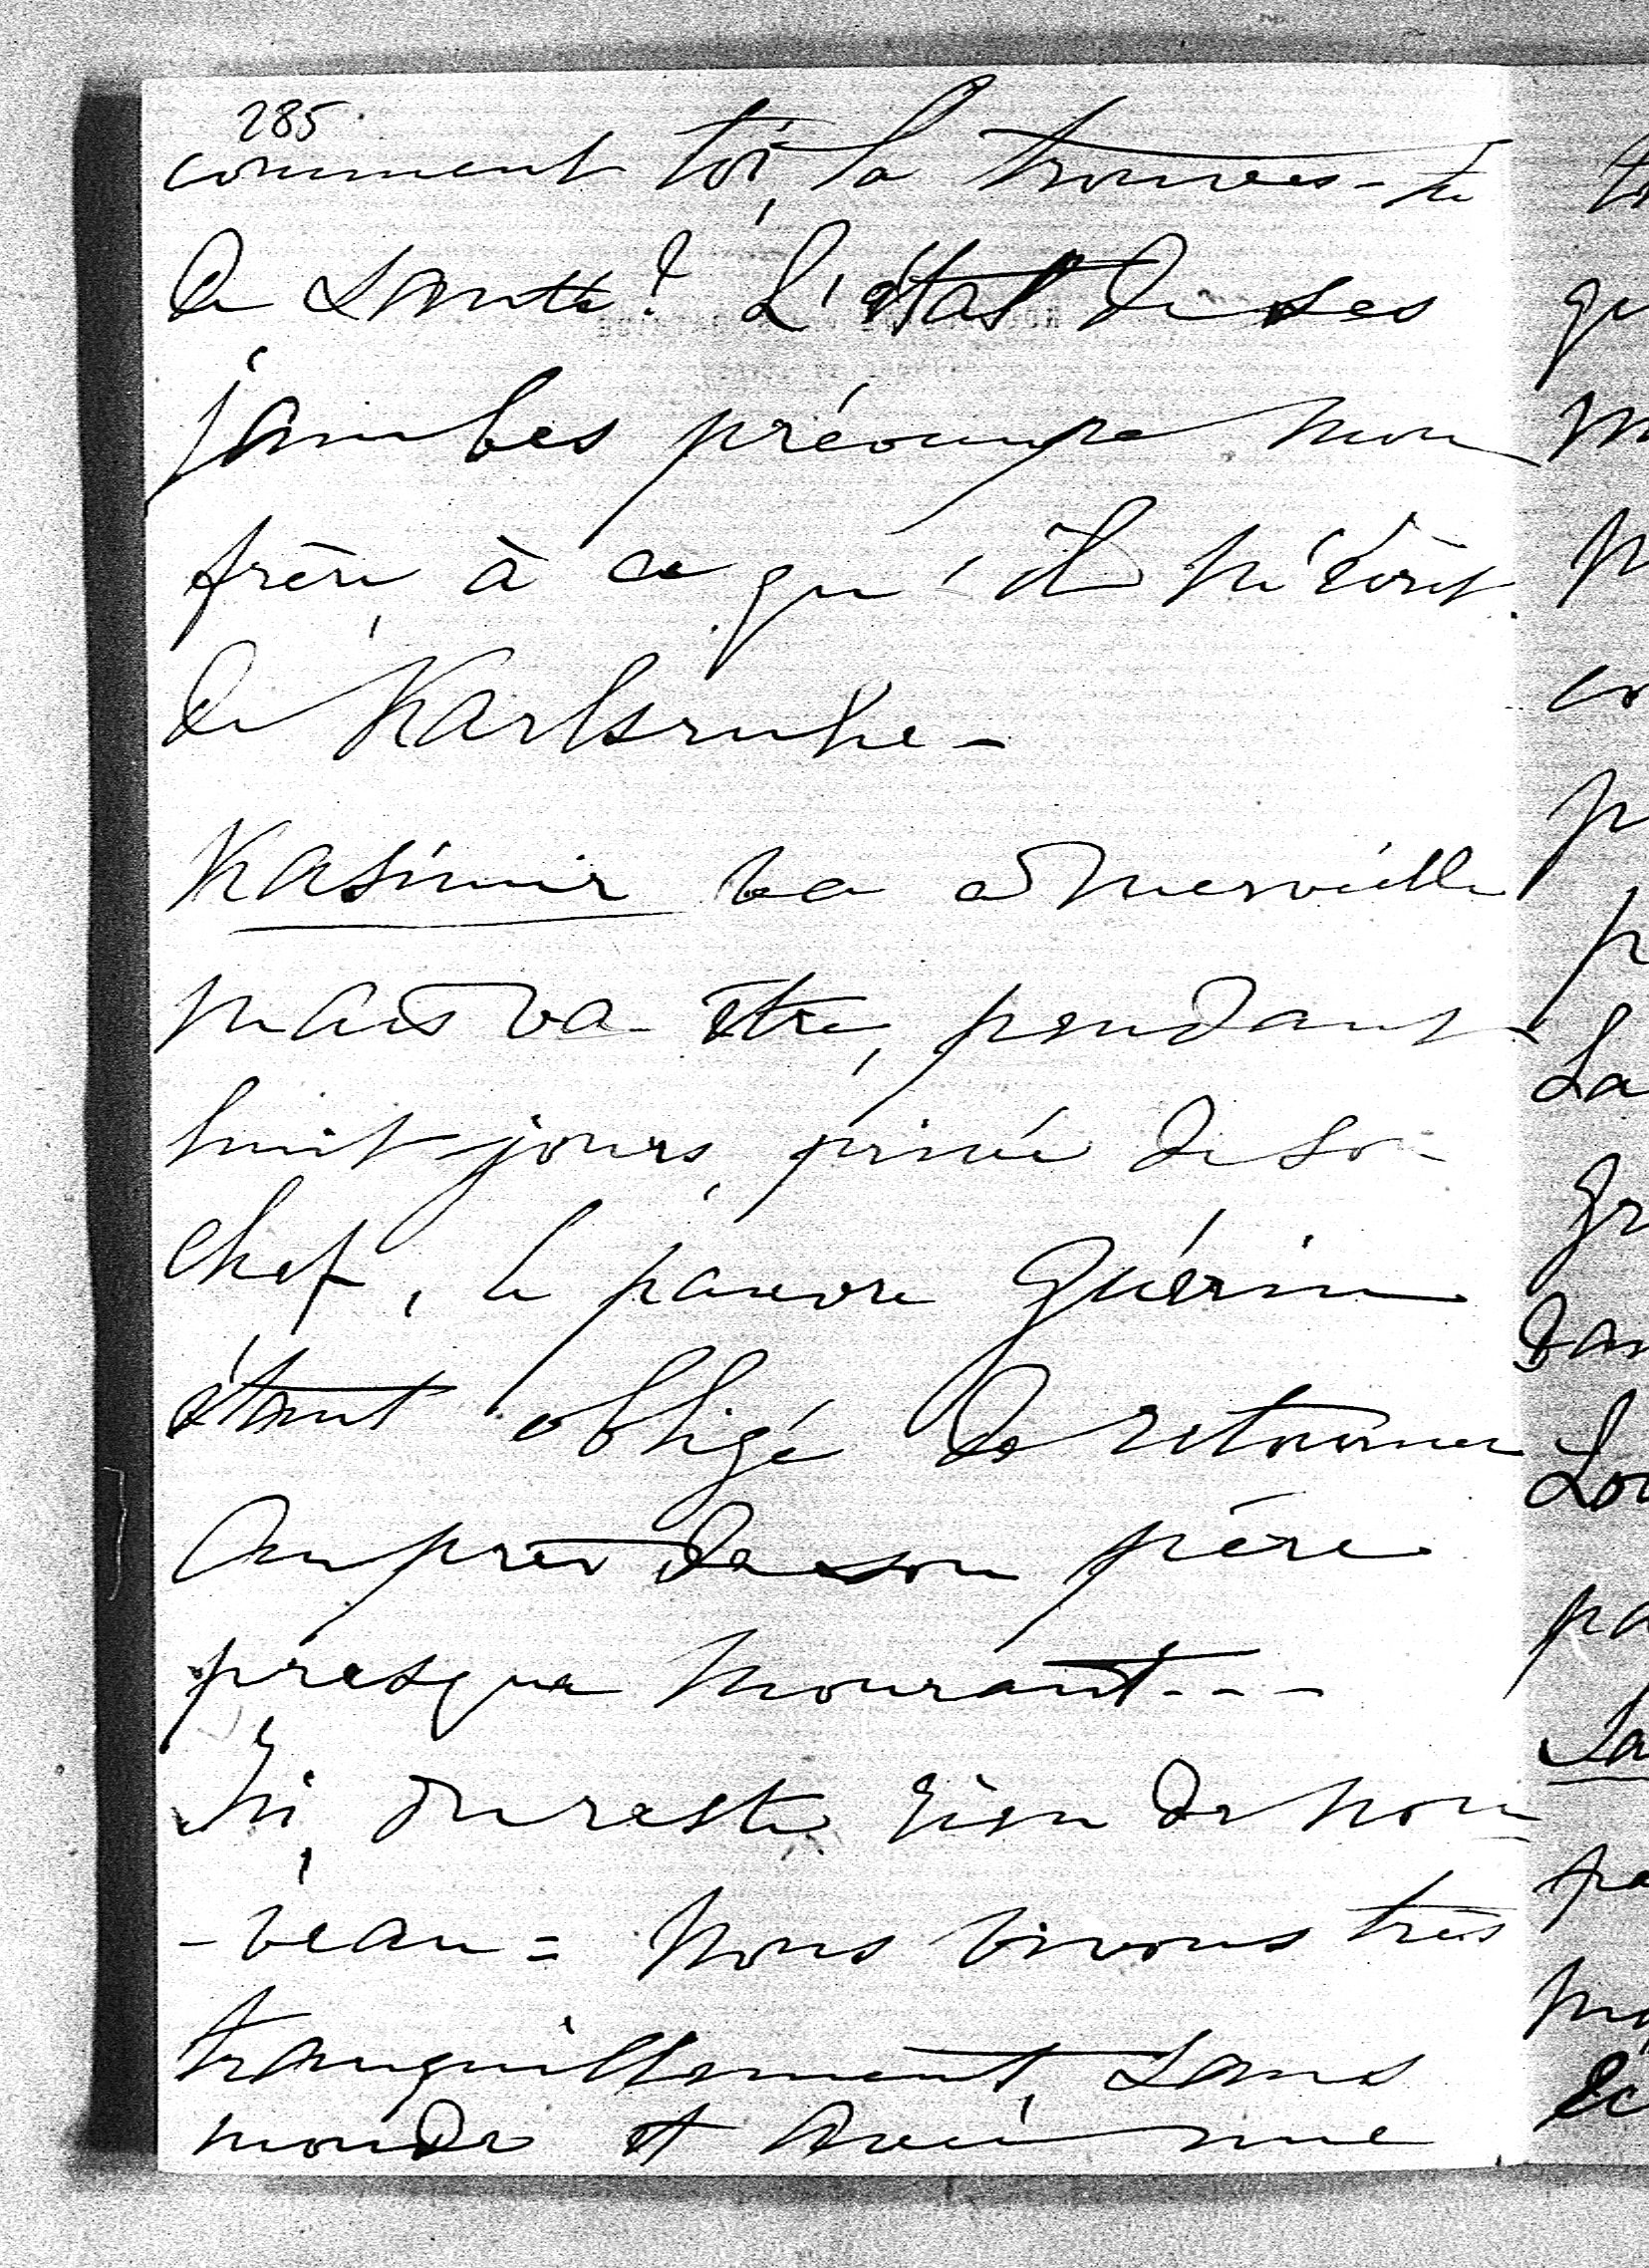 285
comment toi, la trouves-tu
de santé? L'état de ses
jambes préoccupe mon
frère, à ce qu'il m'écrit
de Karlsruhe -
Kasimir va à merveille
mais va être, pendant
huit jours, privé de so-
chef, le pauvre Guérin
étant obligé de retourner
auprès de son père
presque mourant - - -
Ici, du reste rien de nou
- veau = Nous vivons très
tranquillement, sans
monde et avec une